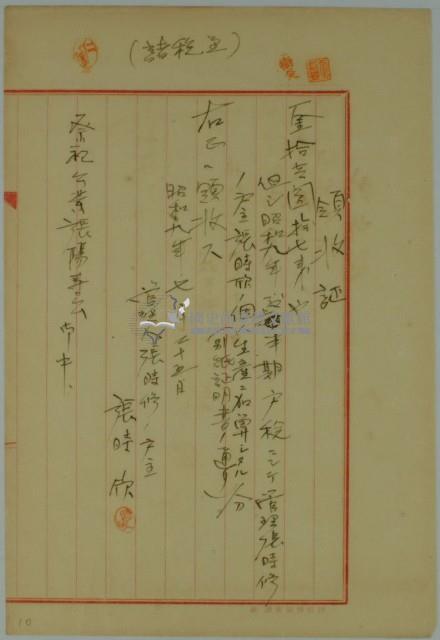 (諸税金)
領收証
金拾壱圓拾七銭也
但シ昭和九年度前半期戶税ニシテ管理張時修
ノ戶主張時欣ノ個人生產ニ加算シタル分
(別紙証明書ノ通リ)
右正ニ領收ス
昭和九年七月二十五日
管理人張時修ノ戶主
張時欣
祭祀公業張陽壽公 御中
10